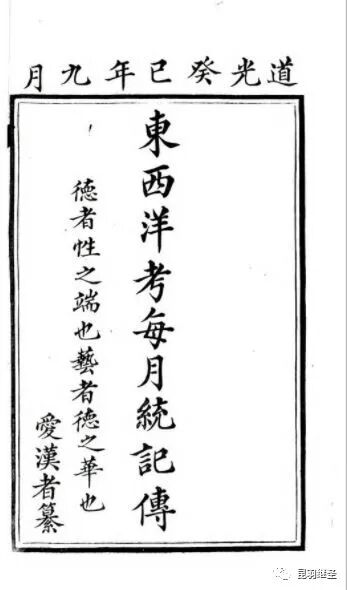 道光癸巳年九月
東西洋考每月統記傳
德者性之端也藝者德之華也
愛漢者纂
昆羽继圣